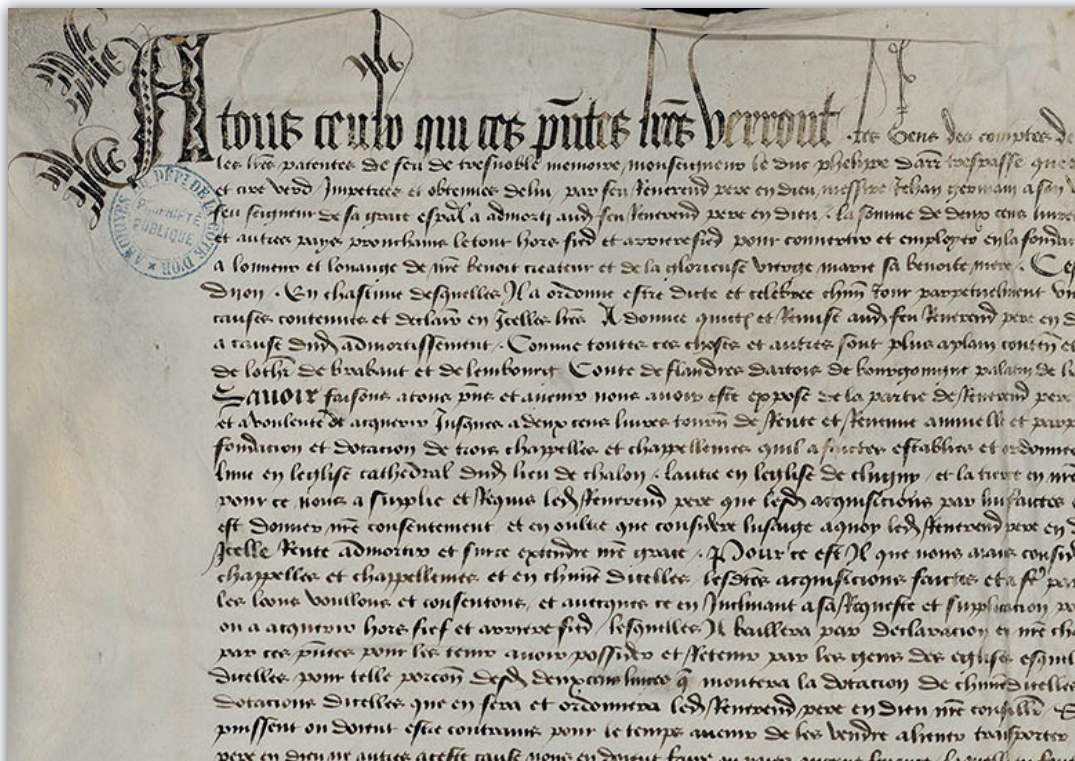 A tous ceulx qui ces pñtes lrẽs verront . Les Gens des comptes de
les lrẽs patentes de feu de tresnoble memoire, monseigneur le duc phelippe darr̃ trespasse que
et cire verd Impetrees et obtenues de lui par feu Reverend pere en dieu messire Jehan germain a son
feu seigneur de sa grace espãl a admorti aud feu Reverend pere en dieu . la somme de deux cens livres
et autres pays prouchains le tout hors fied et arrierefied pour convertir et employer en la fondac
a lonneur et louange de nr̃e benoit createur et de la glorieuse vierge marie sa benoite mere .
diion . En chascune desquelles Il a ordonne estre dicte et celebree chũn Jour perpetuelment
causes contenues et declairees en Icelles lrẽs A donnee quictee et Remise aud feu Reverend pere en
a cause dud admortissement . Comme toutes ces choses et autres sont plus aplain
de lothr̃ de brabant et de lembourg Conte de flandres dartois de bourgoingne palatin de
Savoir faisons a tous pñs et avenir nous avoir este expose de la partie de Reverend pere
et a voulente de acquerir Jusques a deux cens livres tourñ de Rente et Revenue annuelle et
fondacion et dotacion de trois chappelles et chappellenies quil a faictes establies et ordonnees
lune en leglise cathedral dud lieu de chalon . lautre en leglise de clugny . et la tierce en
pour ce nous a supplie et Requis led Reverend pere que lesd acquisicions par lui faictes
est donner nr̃e consentement et en oultre que considere lusaige a quoy led Reverend pere en
Icelle Rente admortir et sur ce extendre nr̃e grace . Pour ce est Il que nous aians
chappelles et chappellenies et en chũne dicelles lesdtes acquisicions faictes et a
les loons voullons et consentons, et avecques ce en Inclinant a sa Requeste et supplicacion
ou a acquerir hors fief et arrierefied lesquelles Il baillera par declaracion en nr̃e
par ces pñtes pour les tenir avoir possider et Retenir par les gens des eglises
dicelles pour telle porcoñ desd deux cens livres q̃ montera la dotacion de chũne dicelles
dotacions dicelles que en fera et ordonnera led Reverend pere en dieu nr̃e conseillr̃
puissent ou doivent estre contrains pour le temps avenir de les vendre aliener transporter
pere en dieu ne autres a ceste cause nous en doivent faire ou paier aucune finance
ARCHIVES DU DÉPT. DE LA CÔTE D'OR
PROPRIÉTÉ
PUBLIQUE